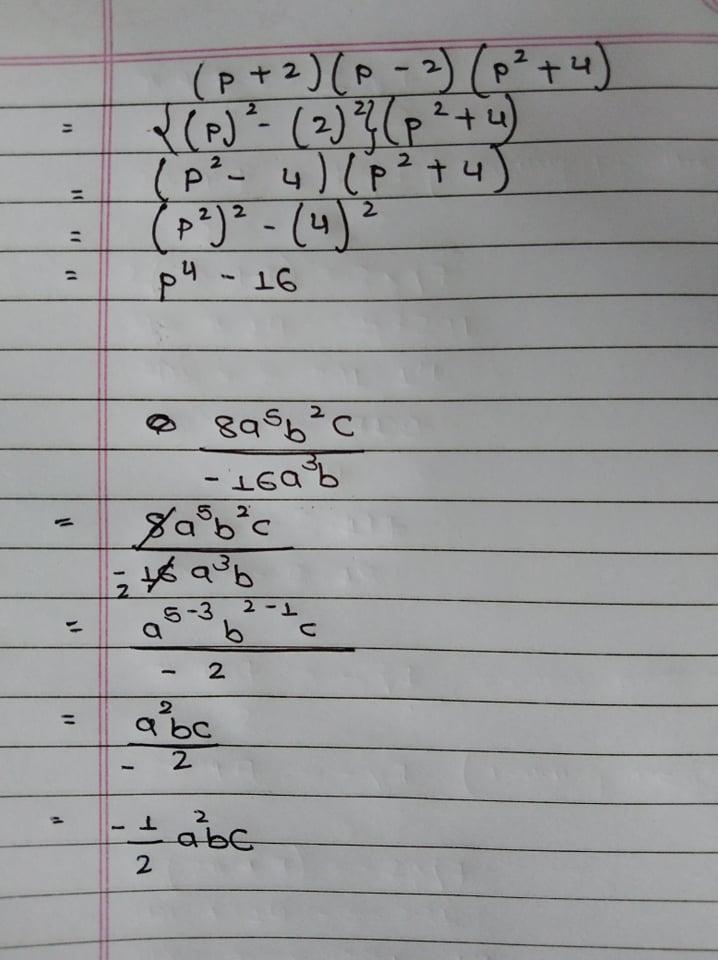 (p + 2)(p - 2)(p² + 4)
= {(p)² - (2)²}(p² + 4)
= (p² - 4)(p² + 4)
= (p²)² - (4)²
= p⁴ - 16
8a⁵b²c
- 16a³b
= 8a⁵b²c
- 16 a³b
2
= a⁵⁻³ b²⁻¹ c
- 2
= a²bc
- 2
= - 1 a²bc
2